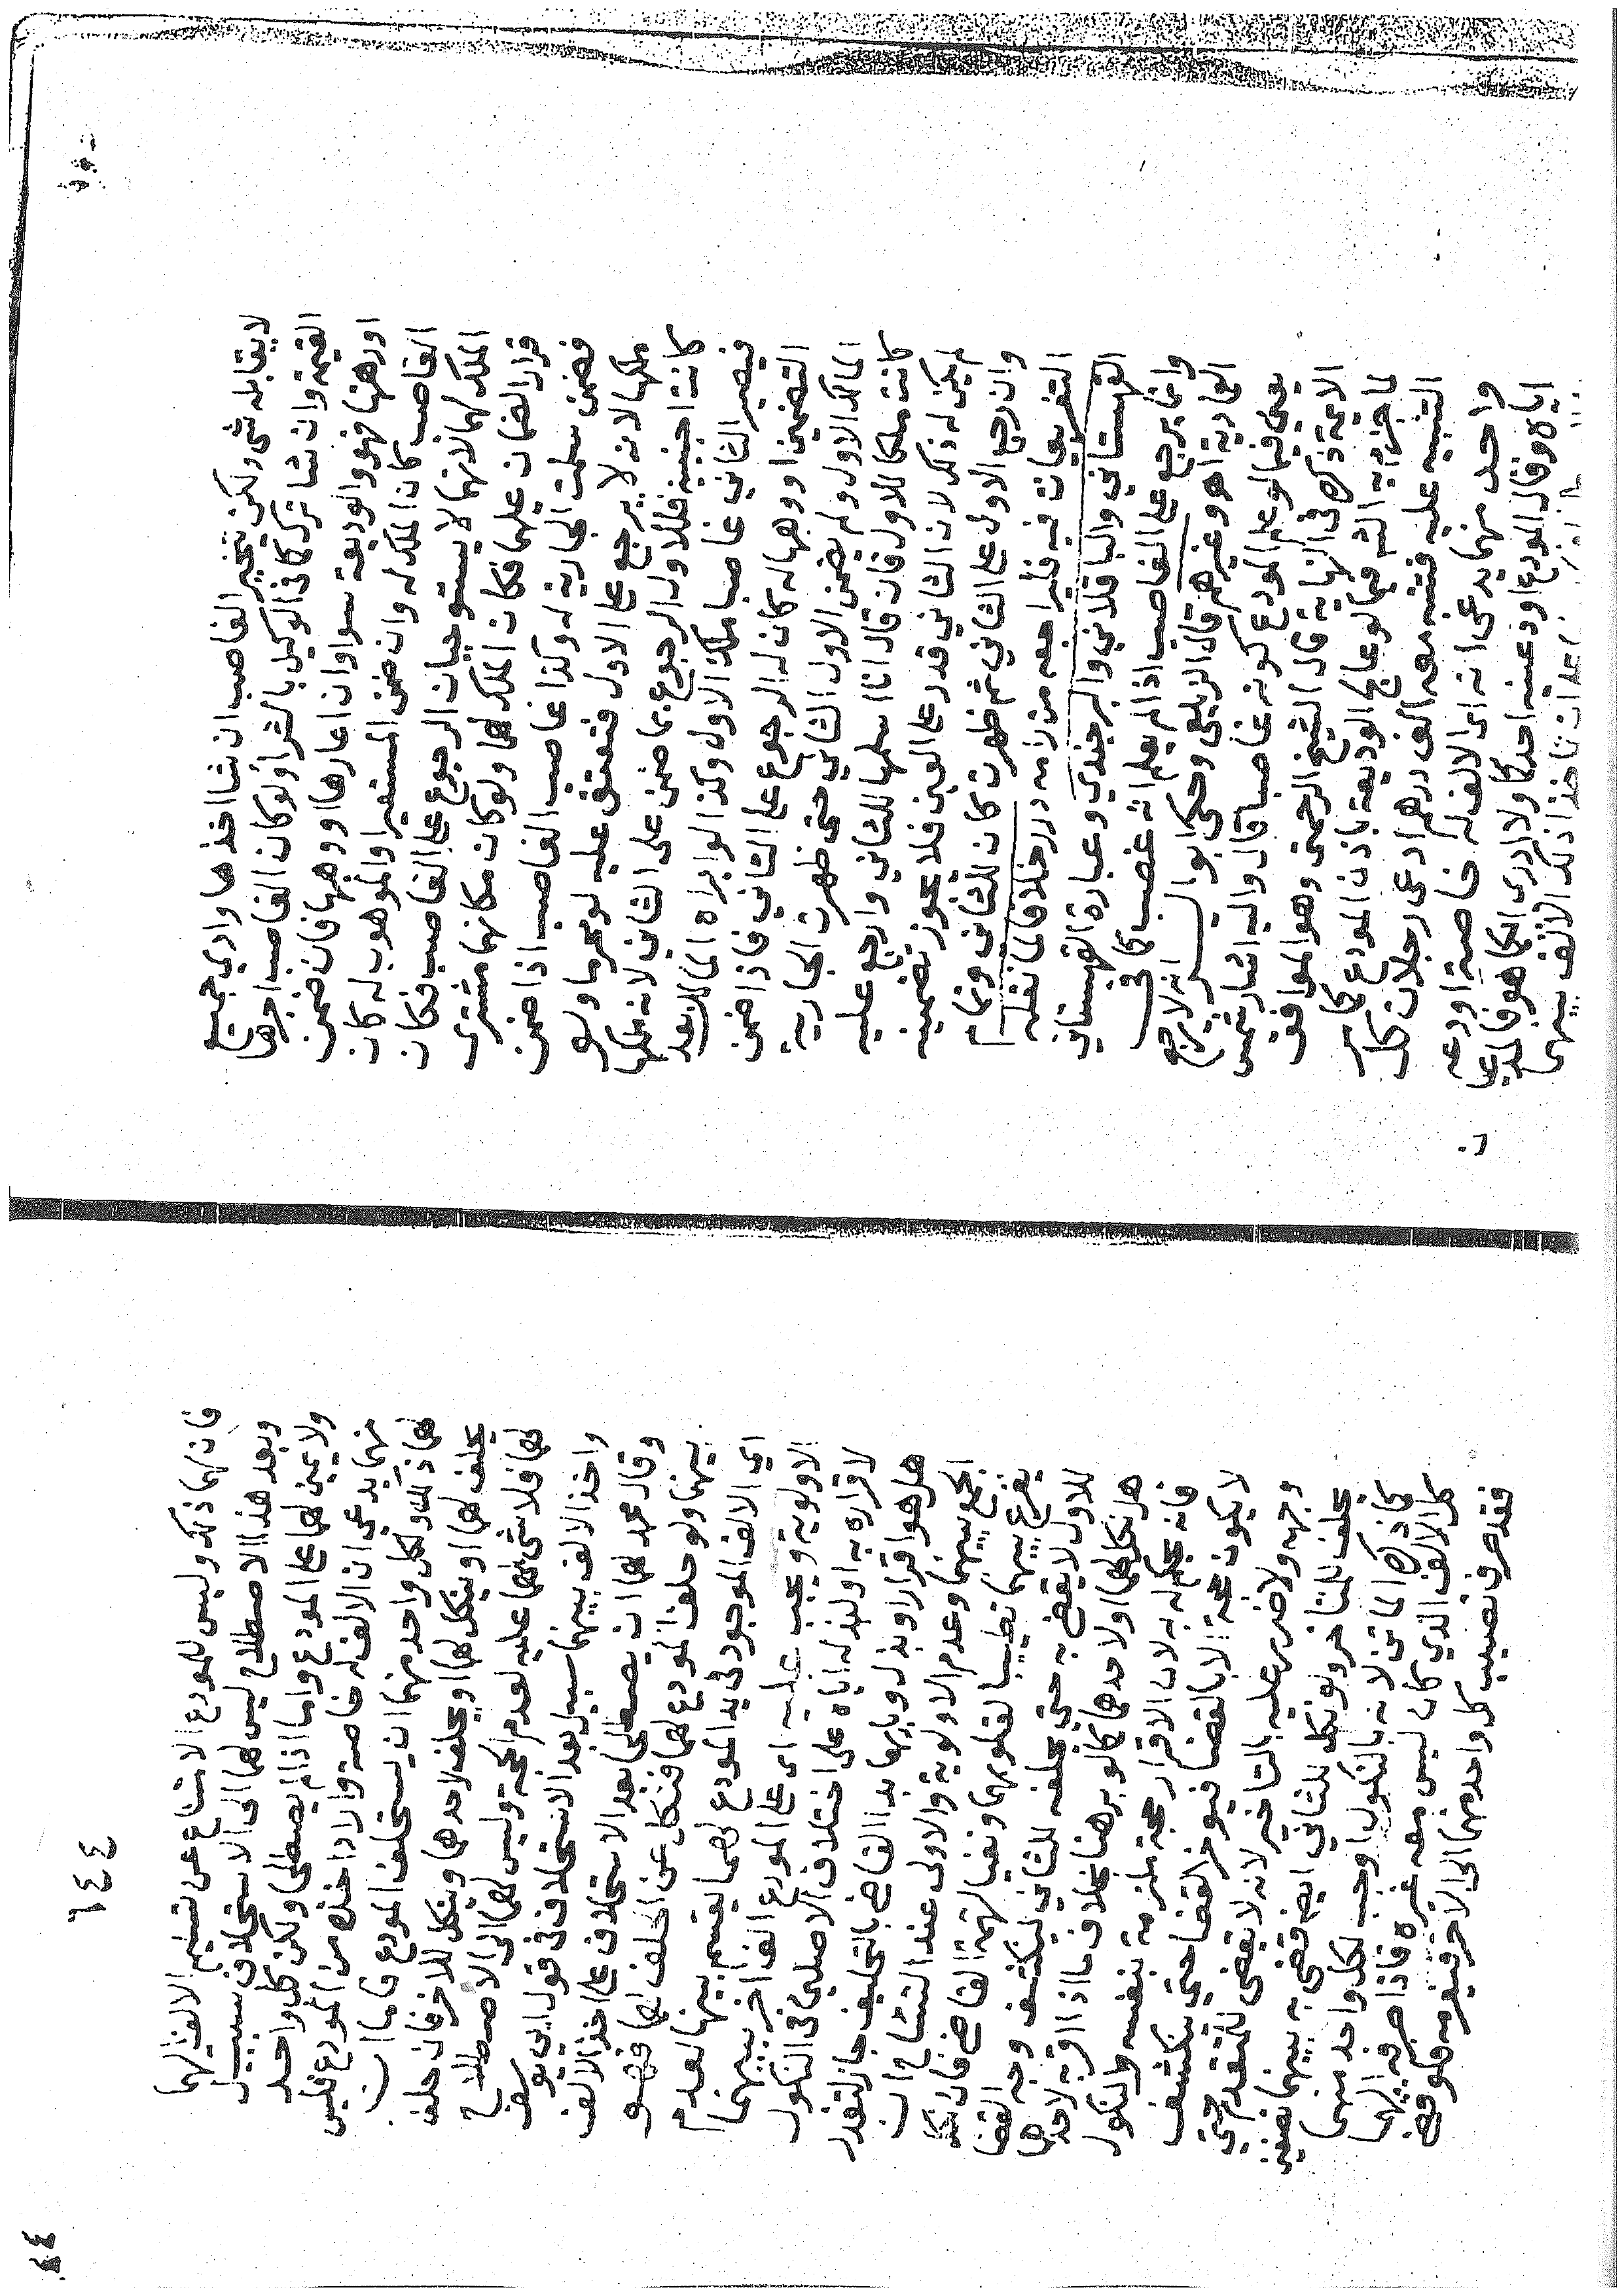 لا يقابله شي ولكن يتخير الغاصب ان شا اخذها وادي جميع
القيمة وان شا ترك كما في الوكيل بالشرا ولو كان الغاصب اجرها
اورهنها فهو والوديعة سوا وان اعارها او وهبها فان ضمن
الغاصب كان الملك له وان ضمن المستعير او الموهوب له كان
الملك لهما لانهما لا يستوجبان الرجوع على الغاصب فكان
قرار الضمان عليهما فكان الملك لهما ولو كان مكانهما مشتري
فضمن سلمت الجارية له وكذا غاصب الغاصب اذا ضمن
ملكها لانه لا يرجع على الاول فتعتق عليه لو محرما ولو
كانت اجنبية فللاول الرجوع بما ضمن على الثاني لانه ملكها
فيصير الثاني غاصبا ملك الاول وكذا لو ابراه المالك بعد
التضمين او وهبها له كان له الرجوع على الثاني فاذا ضمن
المالك الاول ولم يضمن الاول الثاني حتى ظهرت الجارية
كانت ملكا للاول فان قال انا اسلمها للثاني وارجع عليه
لم يكن له ذلك لان الثاني قدر على العين فلا يجوز تضمينه
وان رجع الاول على الثاني ثم ظهرت كان للثاني وتمام
التفريعات فيه فليراجعه من رامه درر خلافا لما نقله
القهستاني والباقلاني والبرجندي وعبارة القهستاني
وانما يرجع على الغاصب اذا لم يعلم انه غصب كما في
العمادية اهو وغيرهم قال الزيلعي وحكى ابو اليسر انه لا يرجع
يعني فيما لو علم المودع كونه غاصبا قال واليه اشار شمس
الايمة ذكره في النهاية قال الشيخ الرحمتي وهو الموافق
لما جزم به الشم فيما لو عالج الوديعة باذن المودع كما مر
التنبيه عليه فتنبه معه الف درهم ادعى رجلان كل
واحد منهما يدعي انه اى الالف له خاصة اودعه
اياه وقال المودع اودعنيه احدكما ولا ادرى ايكما هو فان ادعيا
ان ناخذ ذلك الالف بينهما
١٤٤
فان لهما ذلك وليس للمودع الامتناع عن تسليم الالف اليهما
وبعد هذا الاصطلاح ليس لهما الى الاستحلاف سبيل
ولا يمين لهما على المودع واما اذا لم يصطلحا ولكن كل واحد
منهما يدعي ان الالف له خاصة والاد اخذه من المودع فليس
لهما ذلك ولكل واحد منهما ان يستحلف المودع فاما ان
يحلف لهما او ينكل لهما او يحلف لاحدهما وينكل للاخر فان حلف
لهما فلا شي لهما عليه لعدم الحجة وليس لهما الى الاصطلاح
واخذ الالف بينهما سبيل بعد الاستحلاف في قول ابي يوسف
وقال محمد لهما ان يصطلحا بعد الاستحلاف على اخذ الالف
بينهما ولو حلف المودع لهما فنكل عن الحلف لهما فهو
اي الالف الموجود في يد المودع لهما يقتسم بينهما لعدم
الاولوية ويجب عليه اى على المودع الف اخر بينهما
لاقراره به اولبذله اياه على اختلاف الاصلين في النكول
هل هو اقرار او بذل وبايهما بدا القاضي بالتحليف جاز لتعذر
الجمع بينهما وعدم الاولوية والاولى عند التشاح ان
يقرع بينهما تطييبا لقلوبهما ونفيا لتهمة القاضي فان نكل
للاول لا يقضى به حتى يحلفه للثاني لينكشف وجه القضا
هل نكل لهما او لاحدهما كما لو برهنا بخلاف ما اذا اقر به لاحدهما
فانه يحكم له به لان الاقرار حجة ملزمة بنفسه والنكول
لا يكون حجة الا بالقضا فيوخر القضا حتى ينكشف
وجهه ولا ضرر عليه بالتاخير لانه لا يقضى للمتقدم حتى
يحلف للمتاخر ولو نكل للثاني ايضا قضى به بينهما نصفين
كما ذكره الماتن لانه بالنكول اوجب لكل واحد منهما
كل الالف الذي كان ليس معه غيره فاذا صرفه اليهما
فقد صرف نصيب كل واحد منهما الى الاخر فيغرمه فلو قضى